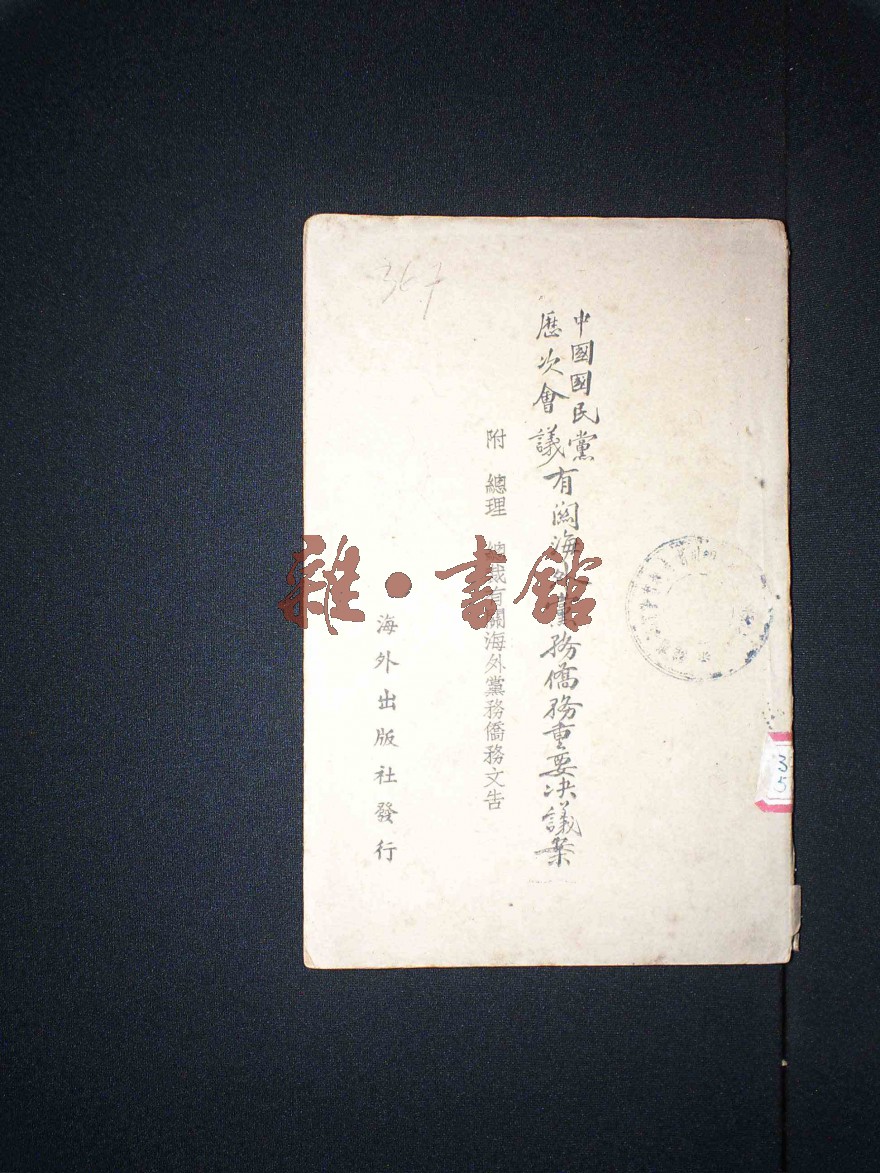 中國國民黨
歷次會議有関海外黨務僑務重要决議案
附 總理 總裁有關海外黨務僑務文告
海外出版社發行
雜·書館
367
3
5